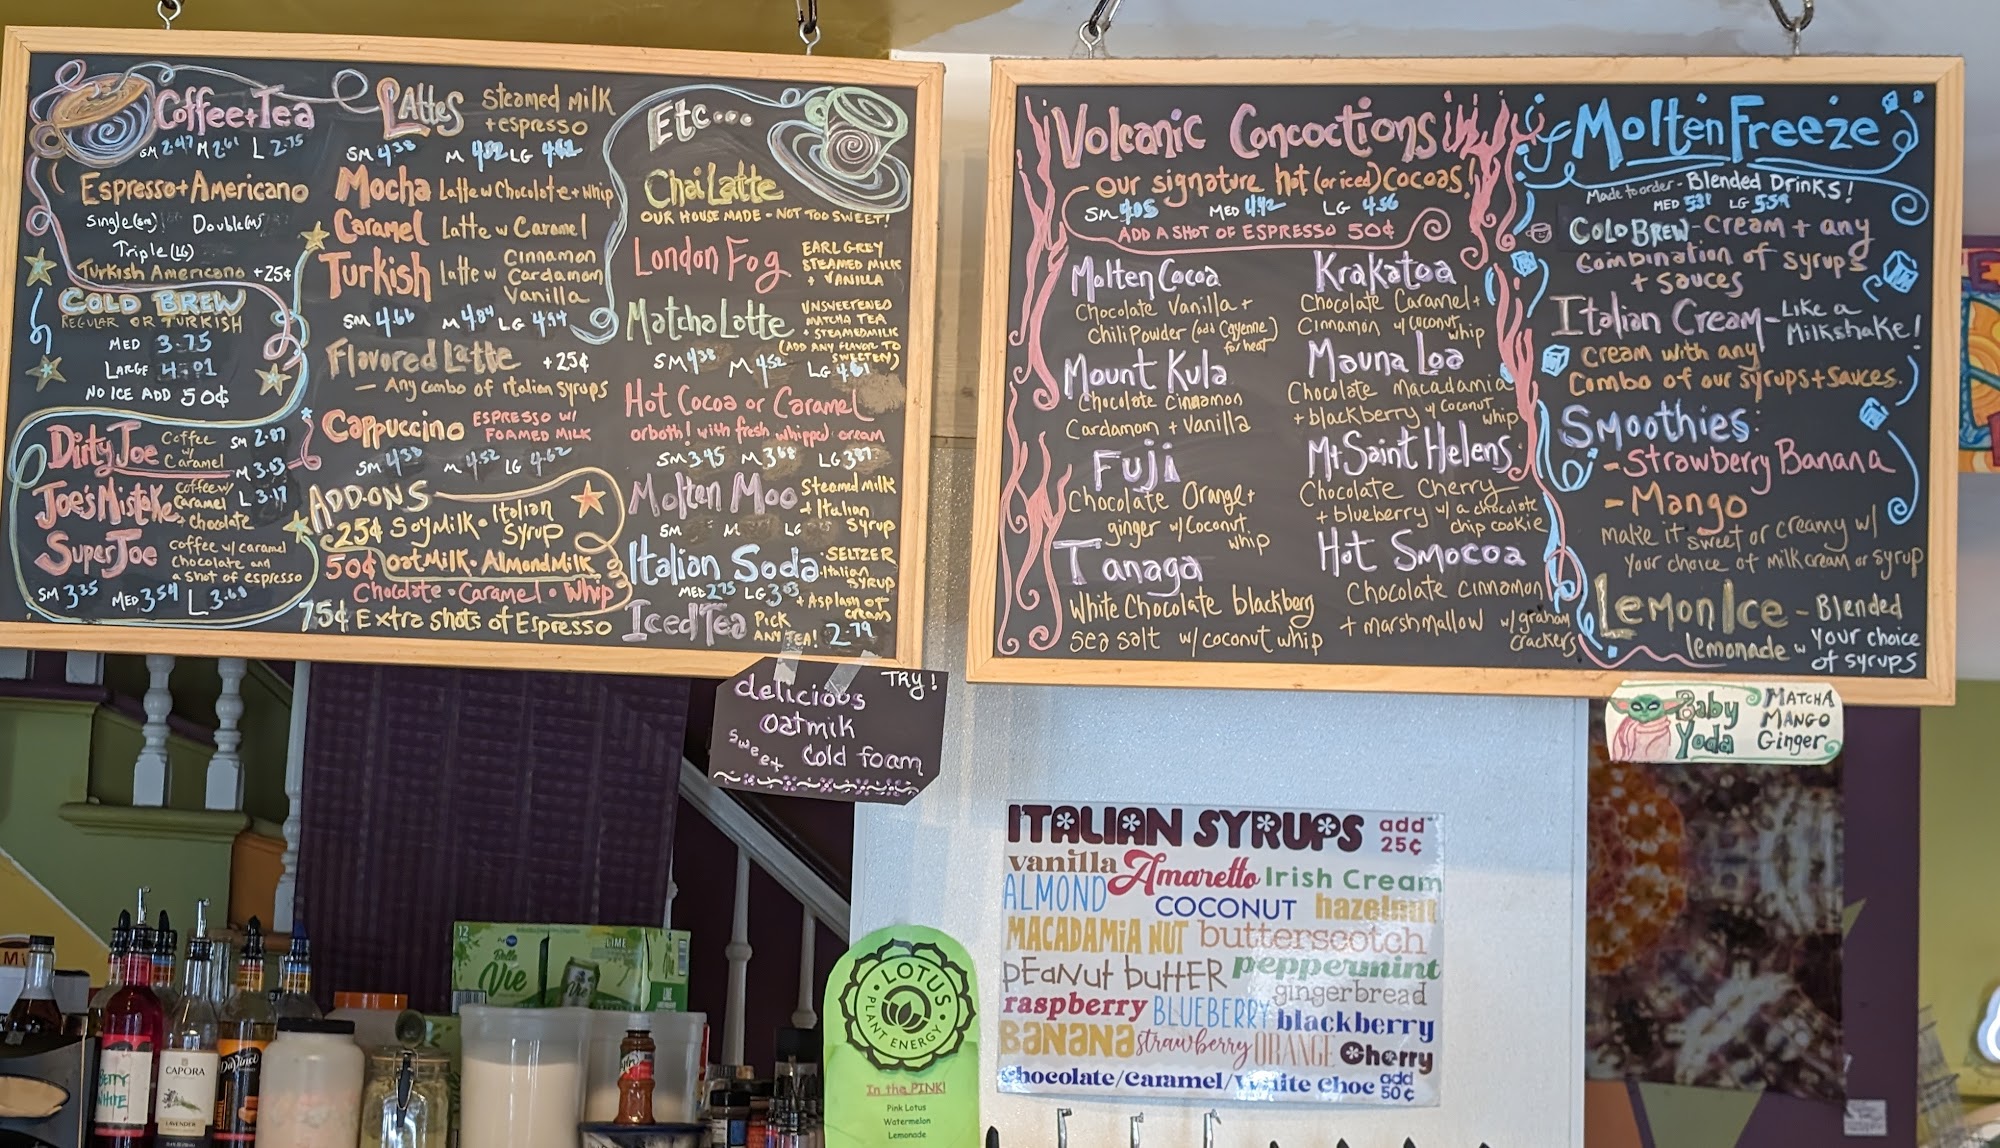 Coffee+Tea
SM 2.47 M 2.61 L 2.75
Espresso+Americano
Single (sm) Double (m)
Triple (LG)
Turkish Americano +25¢
COLD BREW
REGULAR OR TURKISH
MED 3.75
LARGE 4.01
NO ICE ADD 50¢
Dirty Joe Coffee w/ Caramel
SM 2.87
M 3.03
L 3.17
Joe's Mistake Coffee w/ Caramel + chocolate
Super Joe coffee w/ caramel
chocolate and
a shot of espresso
SM 3.35 MED 3.54 L 3.68
LAttes Steamed Milk
+ espresso
SM 4.38 M 4.52 LG 4.62
Mocha Latte w Chocolate + whip
Caramel Latte w Caramel
Turkish Latte w Cinnamon
Cardamom
Vanilla
SM 4.66 M 4.84 LG 4.94
Flavored Latte +25¢
— Any combo of Italian syrups
Cappuccino ESPRESSO W/
FOAMED MILK
SM 4.38 M 4.52 LG 4.62
ADD-ONS
25¢ Soy Milk • Italian
Syrup
50¢ oat Milk • Almond Milk
Chocolate • Caramel • Whip
75¢ Extra Shots of Espresso
Etc...
Chai Latte
OUR HOUSE MADE - NOT TOO SWEET!
London Fog EARL GREY
STEAMED MILK
+ VANILLA
Matcha Latte UNSWEETENED
MATCHA TEA
+ STEAMED MILK
(ADD ANY FLAVOR TO
SWEETEN)
SM 4.38 M 4.52 LG 4.61
Hot Cocoa or Caramel
or both! with fresh whipped cream
SM 3.45 M 3.68 LG 3.87
Molten Moo Steamed Milk
+ Italian
Syrup
SM M LG
Italian Soda • SELTZER
• Italian
SYRUP
+ A splash of
cream
MED 2.75 LG 3.03
Iced Tea Pick
ANY TEA! 2.79
TRY!
delicious
oatmik
sweet cold foam
Volcanic Concoctions
our signature hot (or iced) cocoas!
SM 4.05 MED 4.42 LG 4.56
ADD A SHOT OF ESPRESSO 50¢
Molten Cocoa
Chocolate Vanilla +
Chili Powder (add Cayenne
for heat)
Mount Kula
Chocolate cinnamon
Cardamom + Vanilla
Fuji
Chocolate Orange +
ginger w/ Coconut
whip
Tanaga
White Chocolate blackberg
sea salt w/ coconut whip
Krakatoa
Chocolate Caramel +
Cinnamon w/ coconut
whip
Mauna Loa
Chocolate Macadamia
+ blackberry w/ coconut
whip
Mt Saint Helens
Chocolate Cherry
+ blueberry w/ a chocolate
chip cookie
Hot Smocoa
Chocolate cinnamon
+ marshmallow w/ graham
crackers
Molten Freeze
Made to order - Blended Drinks!
MED 5.31 LG 5.59
COLD BREW - cream + any
combination of syrups
+ sauces
Italian Cream - Like a
Milkshake!
cream with any
combo of our syrups + sauces.
Smoothies:
- Strawberry Banana
- Mango
make it sweet or creamy w/
your choice of milk cream or syrup
Lemon Ice - Blended
lemonade w your choice
of syrups
Baby
Yoda
MATCHA
MANGO
Ginger
ITALIAN SYRUPS add
25¢
vanilla Amaretto Irish Cream
ALMOND COCONUT hazelnut
MACADAMiA NUT butterscotch
PEANUT buTTER peppermint
gingerbread
raspberry BLUEBERRY blackberry
BANANA strawberry ORANGE Cherry
Chocolate/Caramel/White Choc add
50¢
LOTUS
PLANT ENERGY
In the PINK!
Pink Lotus
Watermelon
Lemonade
12
Belle
Vie
LIME
Vie
CAPORA
LAVENDER
DaVinci